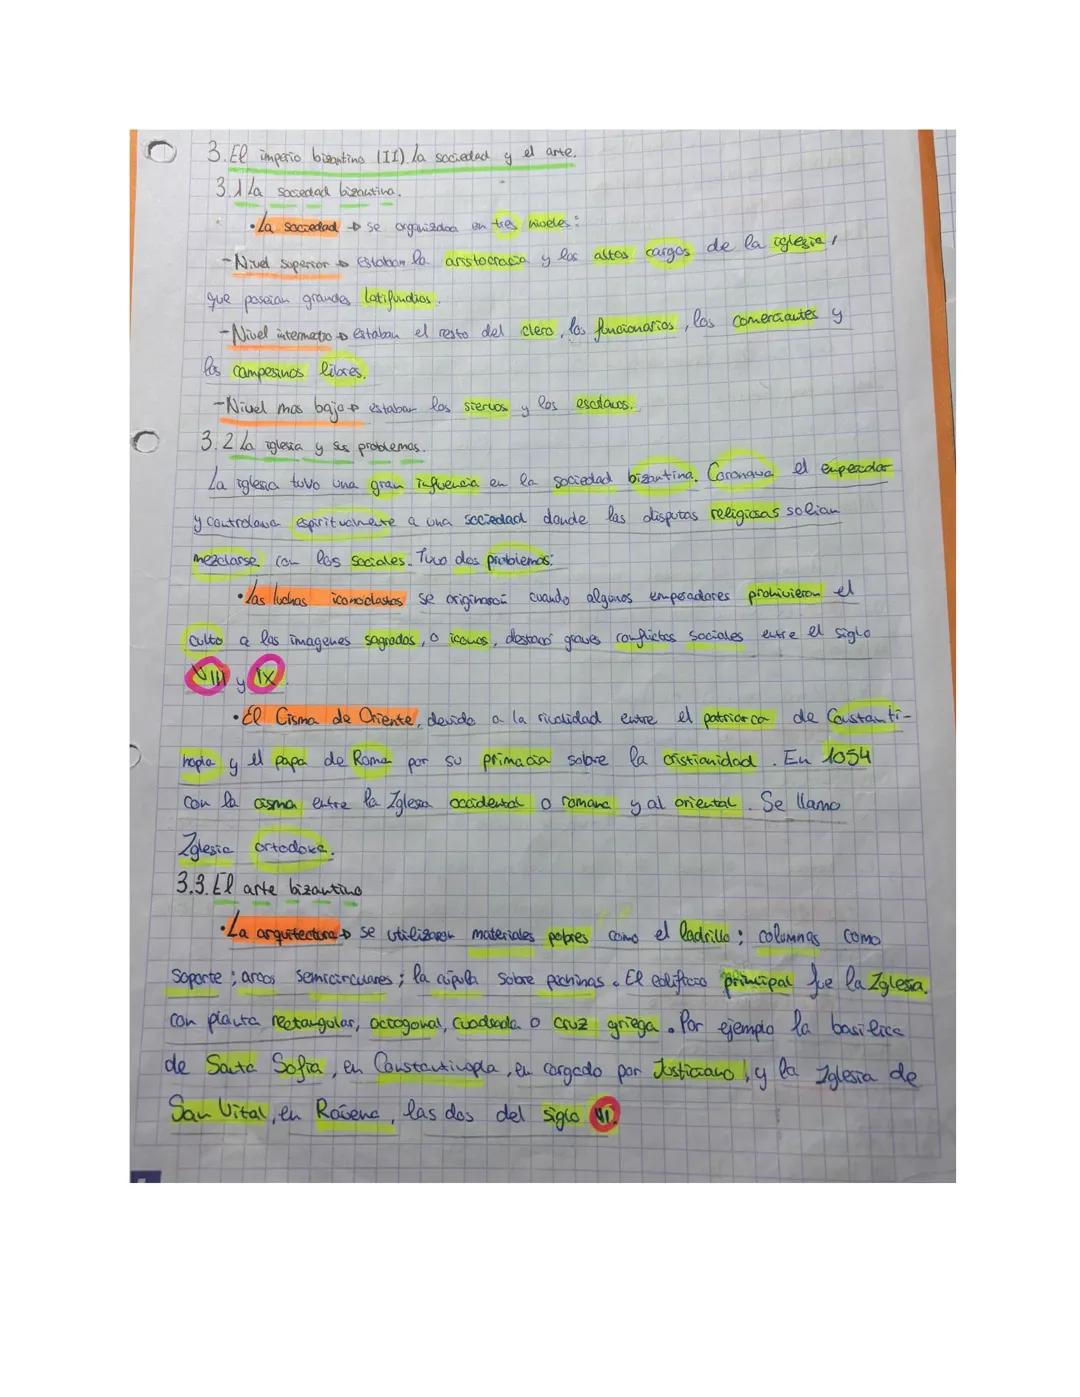 3. El imperio bizantino (II) La sociedad y el arte.
3.1 La sociedad bizantina.
• La sociedad → se organizaba en tres niveles:
- Nivel superior → estaban la aristocracia y los altos cargos de la iglesia,
que poseian grandes latifundios.
- Nivel intermetio → estaban el resto del clero, los funcionarios, los comerciantes y
los campesinos libres.
- Nivel mas bajo → estaban los siervos y los esclavos.
3.2 La iglesia y sus problemas.
La iglesia tuvo una gran influencia en la sociedad bizantina. Coronava el emperador
y controlava espiritualmente a una sociedad donde las disputas religiosas solian
mezclarse con las sociales. Tuvo dos problemas:
• Las luchas iconoclastas se originaron cuando algunos emperadores prohivieron el
culto a las imagenes sagradas, o iconos, graves conflictos sociales entre el siglo
VIII y IX.
• El Cisma de Oriente, devido a la rivalidad entre el patriarca de Constanti-
nopla y el papa de Roma por su primacia sobre la cristianidad. En 1054
con la cisma entre la Iglesia occidental o romana y al oriental. Se llamo
Iglesia ortodoxa.
3.3. El arte bizantino
• La arquitectura → se utilizaron materiales pobres como el ladrillo; columnas como
soporte; arcos semicirculares; la cúpula sobre pechinas. El edificio principal fue la Iglesia.
con planta rectangular, octogonal, cuadrada o cruz griega. Por ejemplo la basilica
de Santa Sofia, en Constantinopla, en cargado por Justiciano, y la Iglesia de
San Vital, en Ravena, las dos del siglo VI.